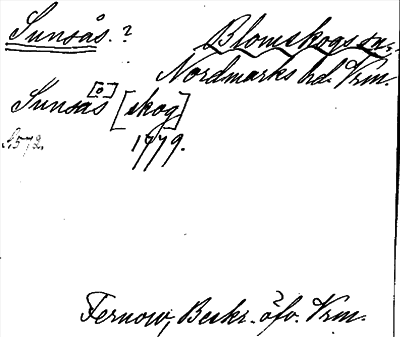 Sunsås. ? Blomskogs sn.
Nordmarks hd. Vrm.
Sunsås [o] [skog]
S. 572. 1779.
Fernow, Beskr. öfv. Vrm.